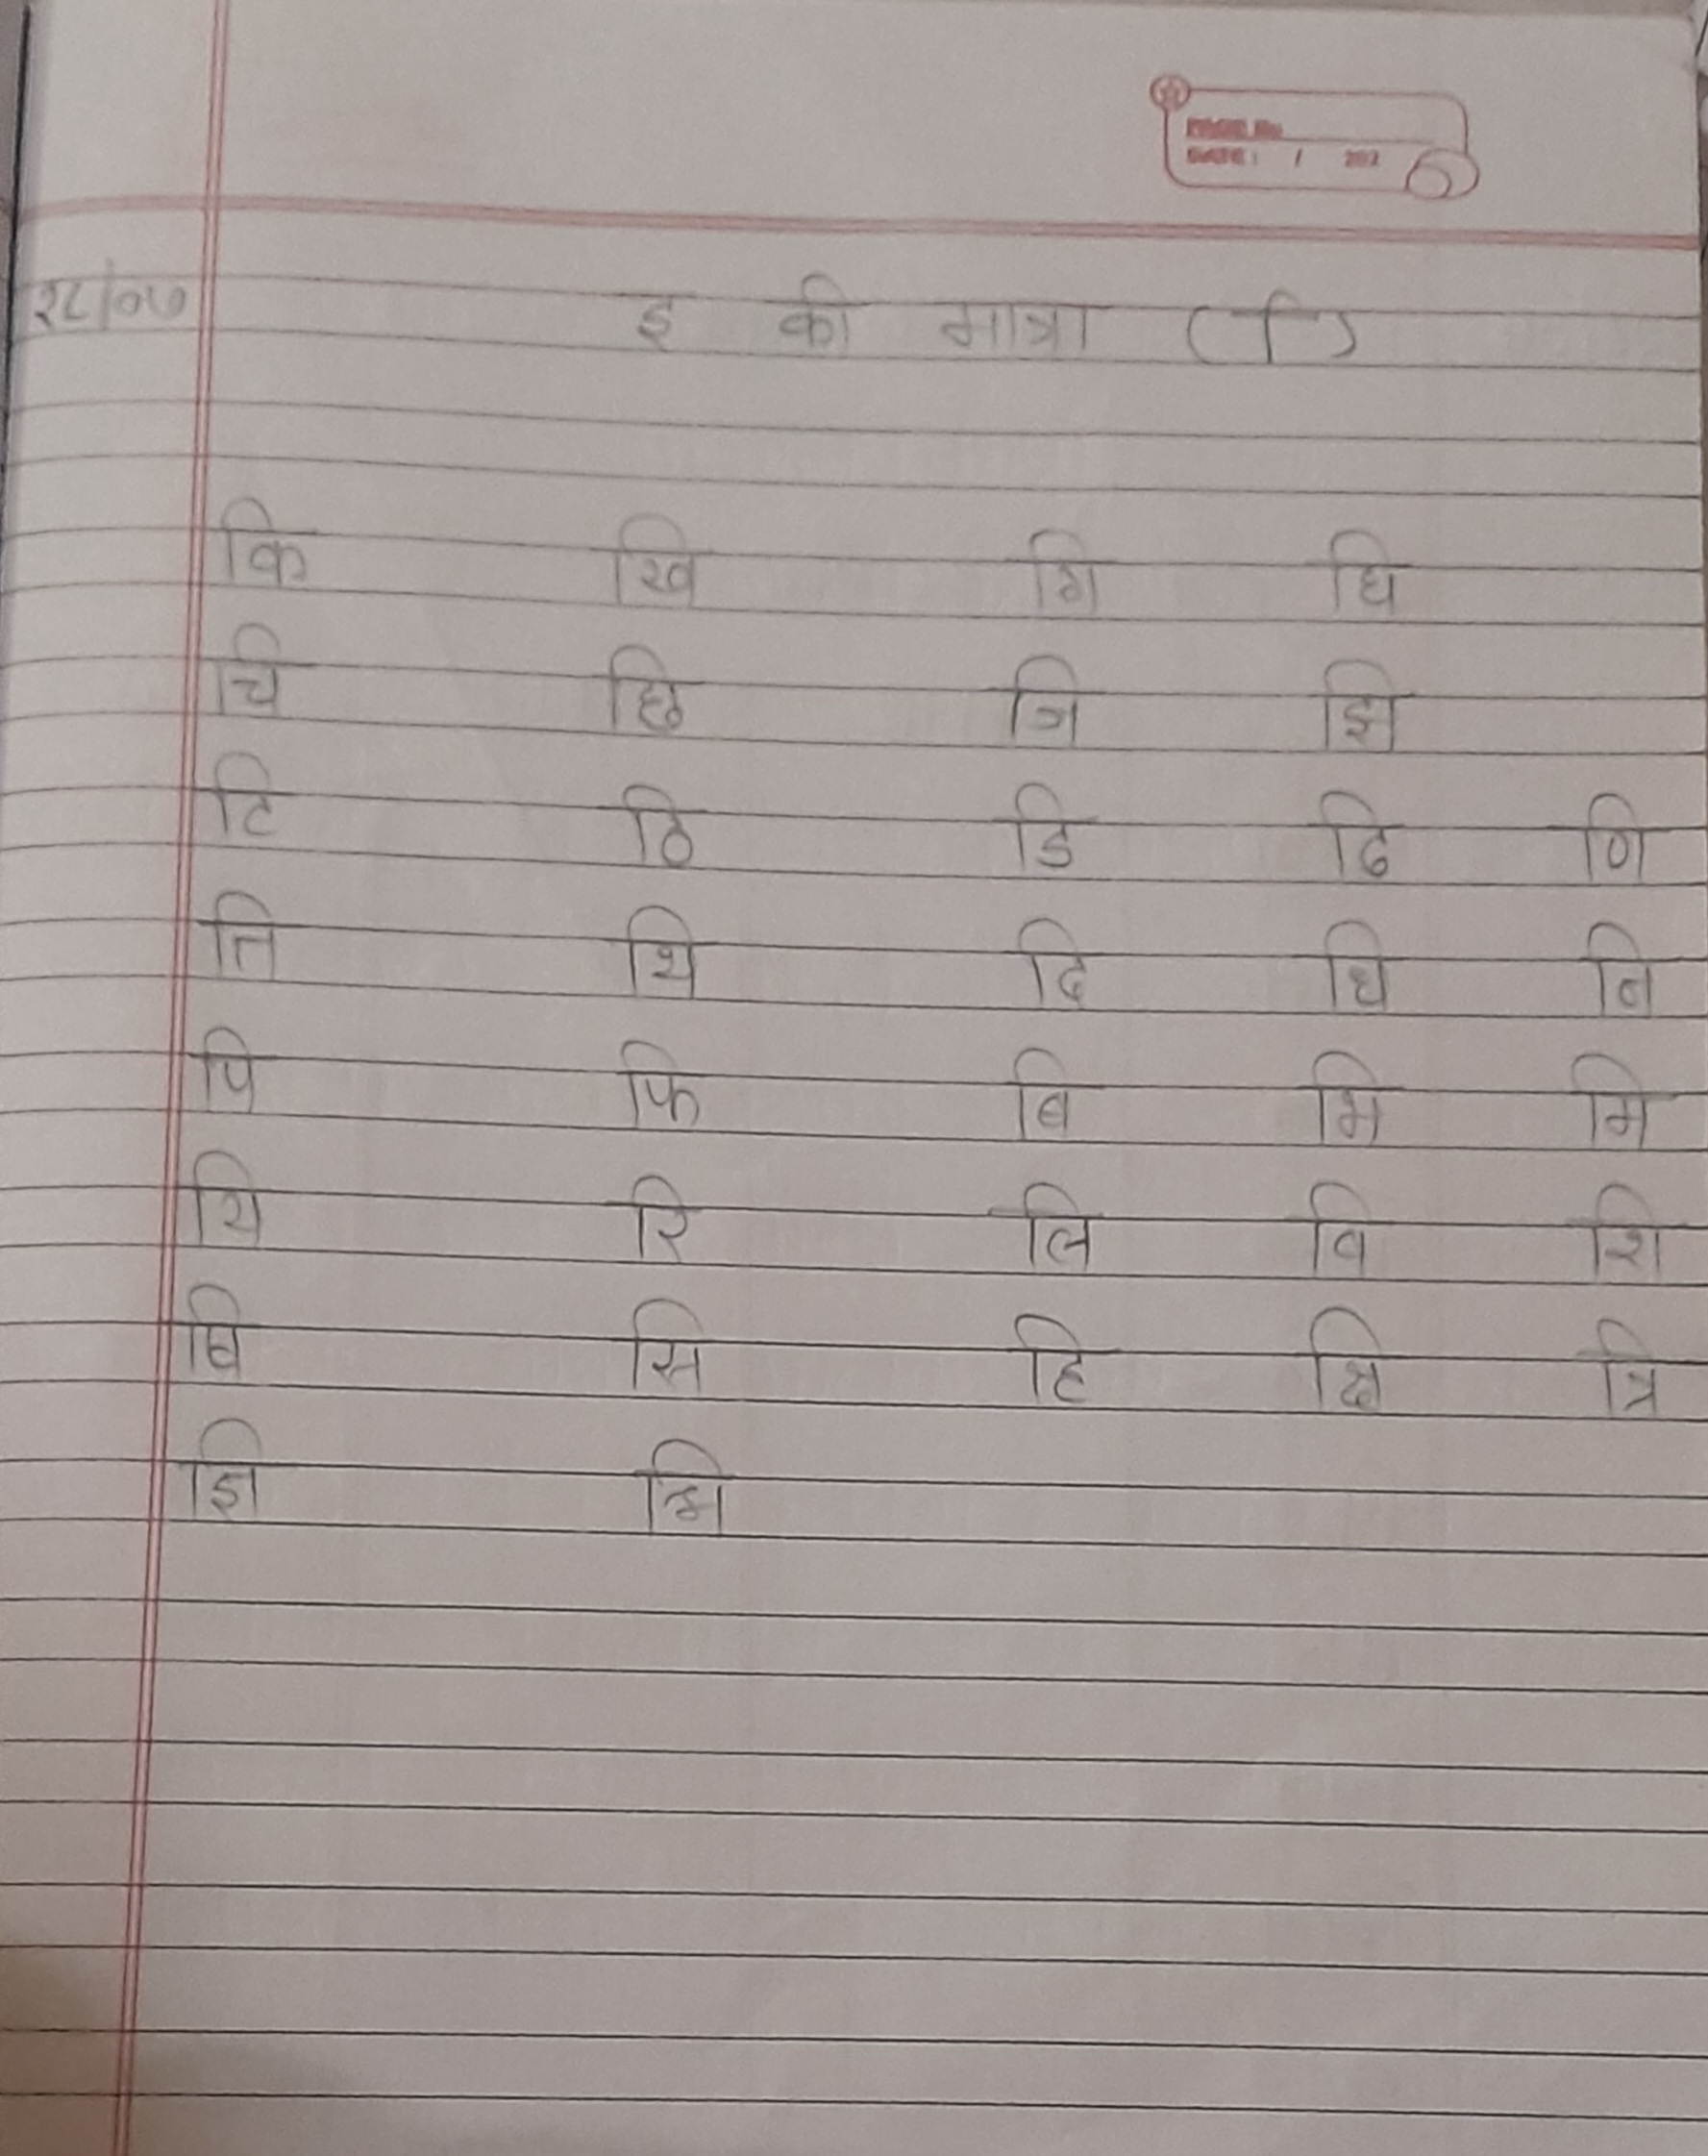 PAGE No.
DATE: / 202
२८/०७ इ की मात्रा ( ि )
कि खि गि घि
चि छि जि झि
टि ठि डि ढि णि
ति थि दि धि नि
पि फि बि भि मि
यि रि लि वि शि
षि सि हि क्षि त्रि
ज्ञि श्रि